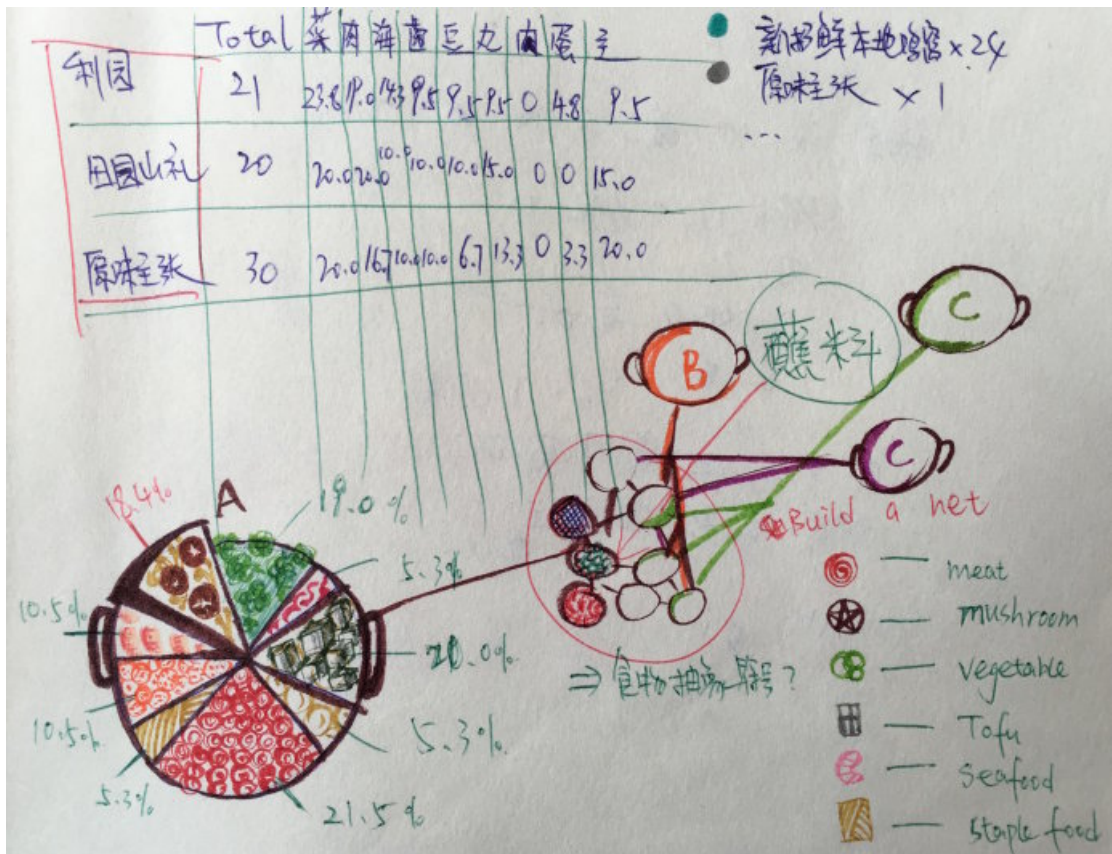 Total 菜 肉 海 菌 豆 丸 内 蛋 主
利园 21 23.8 19.0 14.3 9.5 9.5 9.5 0 4.8 9.5
田园山礼 20 20.0 20.0 10.0 10.0 10.0 15.0 0 0 15.0
原味主张 30 20.0 16.7 10.0 10.0 6.7 13.3 0 3.3 20.0
本地 × 24
原味主张 × 1
...
B
蘸料
C
C
Build a net
A
18.4%
19.0%
5.3%
20.0%
5.3%
21.5%
5.3%
10.5%
10.5%
⇒ 食物抽象 ?
meat
mushroom
vegetable
Tofu
Seafood
staple food